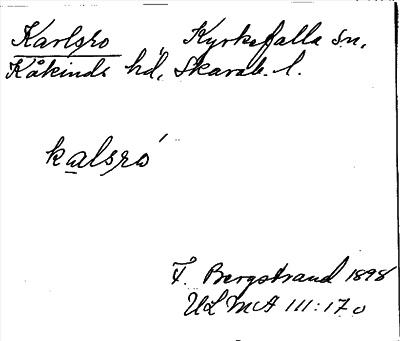 Karlsro, Kyrkefalla sn,
Kåkinds hd, Skarab. l.
kalsró
F. Bergstrand 1898
ULMA 111:170